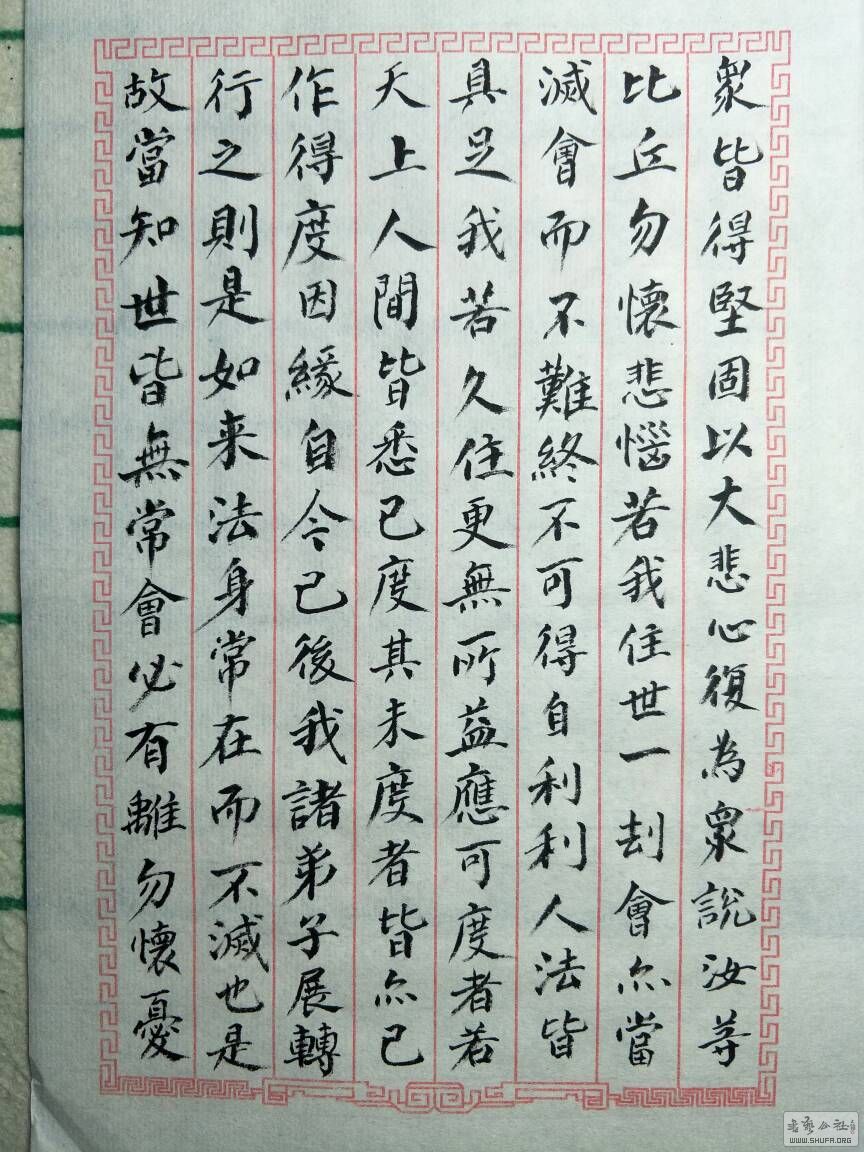 衆皆得堅固以大悲心復為衆說汝等
比丘勿懷悲惱若我住世一劫會亦當
滅會而不難終不可得自利利人法皆
具足我若久住更無所益應可度者若
天上人間皆悉已度其未度者皆亦已
作得度因緣自今已後我諸弟子展轉
行之則是如来法身常在而不滅也是
故當知世皆無常會必有離勿懷憂
WWW.SHUFA.ORG